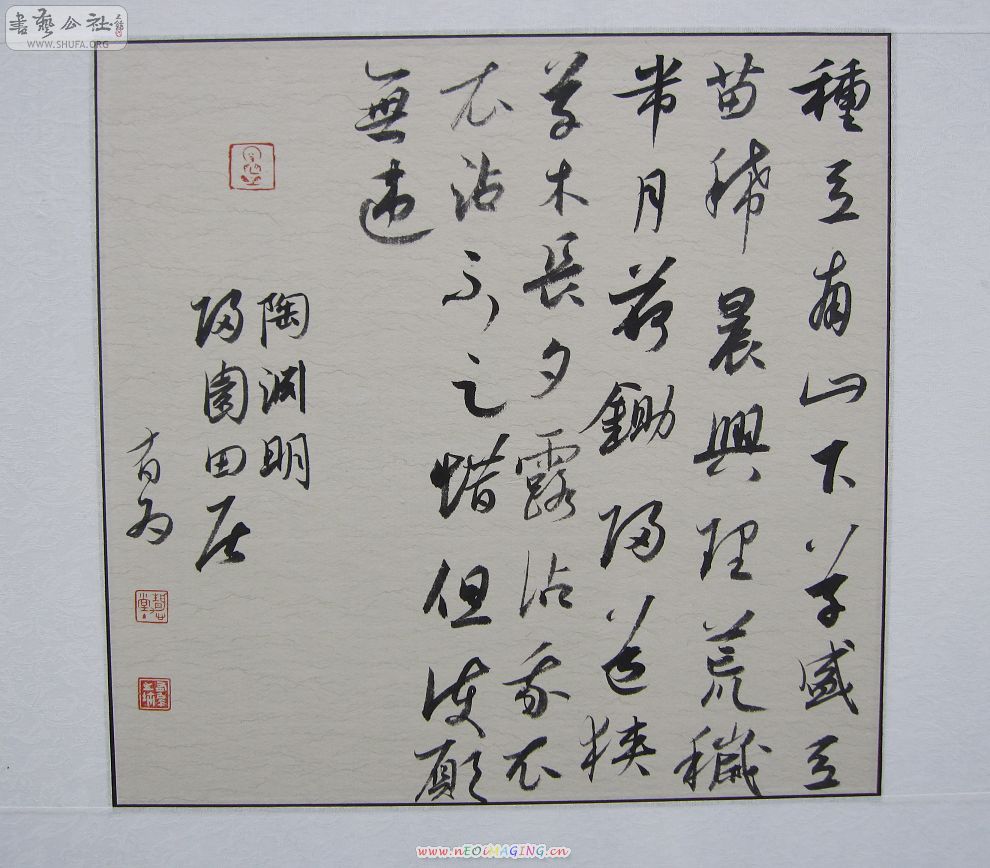 書藝公社
WWW.SHUFA.ORG
種豆南山下草盛豆
苗稀晨興理荒穢
帶月荷鋤歸道狹
草木長夕露沾我衣
衣沾不足惜但使願
無違
陶淵明
歸園田居
www.nEOiMAGiNG.cn